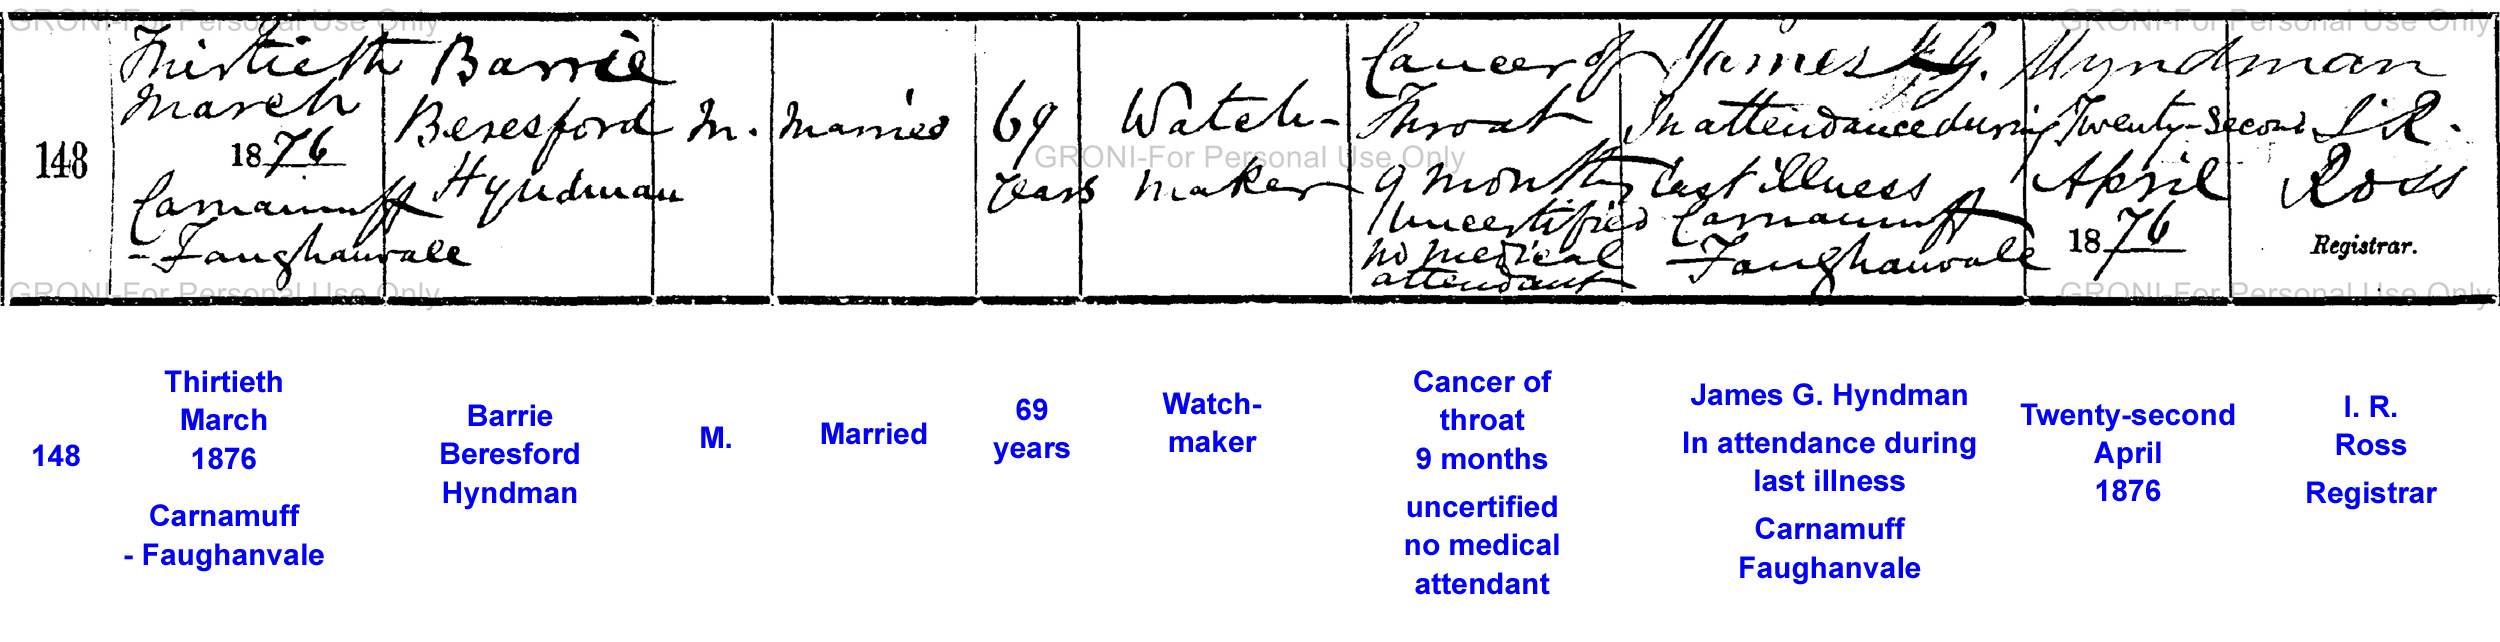 GRONI-For Personal Use Only
GRONI-For Personal Use Only
148
Thirtieth
March
1876
Carnamuff
- Faughanvale
Barrie
Beresford
Hyndman
M.
Married
69
years
Watch-
maker
Cancer of
Throat
9 months
Uncertified
no medical
attendant
James G. Hyndman
In attendance during
last illness
Carnamuff
Faughanvale
Twenty-second
April
1876
I. R.
Ross
Registrar.
GRONI-For Personal Use Only
GRONI-For Personal Use Only
GRONI-For Personal Use Only
148
Thirtieth
March
1876
Carnamuff
- Faughanvale
Barrie
Beresford
Hyndman
M.
Married
69
years
Watch-
maker
Cancer of
throat
9 months
uncertified
no medical
attendant
James G. Hyndman
In attendance during
last illness
Carnamuff
Faughanvale
Twenty-second
April
1876
I. R.
Ross
Registrar